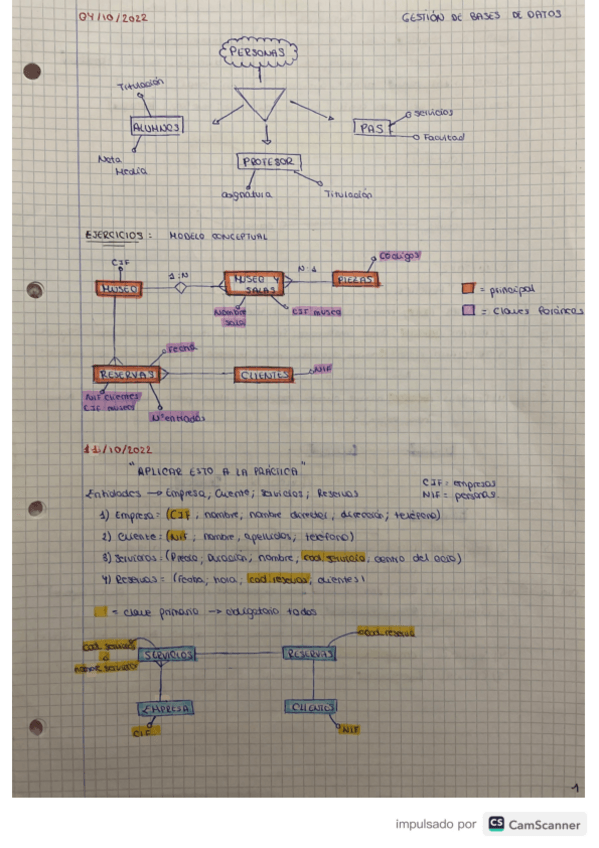 04/10/2022
GESTIÓN DE BASES DE DATOS
PERSONAS
Titulación
ALUMNOS
Nota
Media
PROFESOR
asignatura
Titulación
PAS
Servicios
Facultad
EJERCICIOS: MODELO CONCEPTUAL
CIF
MUSEO
1:N
MUSEO Y
SALAS
N 1
PIEZAS
Códigos
Nombre
sala
CIF museo
= principal
= Claves Foráneas
Fecha
RESERVAS
CLIENTES
NIF
NIF clientes
CIF museo
Nº entradas
11/10/2022
"APLICAR ESTO A LA PRÁCTICA"
CIF = empresas
NIF = personas
Entidades → Empresa; Cliente; Servicios; Reservas
1) Empresa = (CIF, nombre, nombre director, dirección, teléfono)
2) Cliente = (NIF, nombre, apellidos, teléfono)
3) Servicios = (Precio, duración, nombre, cod. servicio, centro del ocio)
4) Reservas = (fecha, hora, cod. reservas, clientes)
= clave primaria → obligatorio todas
Cod. servicio
o
nombre servicio
SERVICIOS
RESERVAS
Cod. reserva
EMPRESA
CIF
CLIENTES
NIF
1
impulsado por CS CamScanner